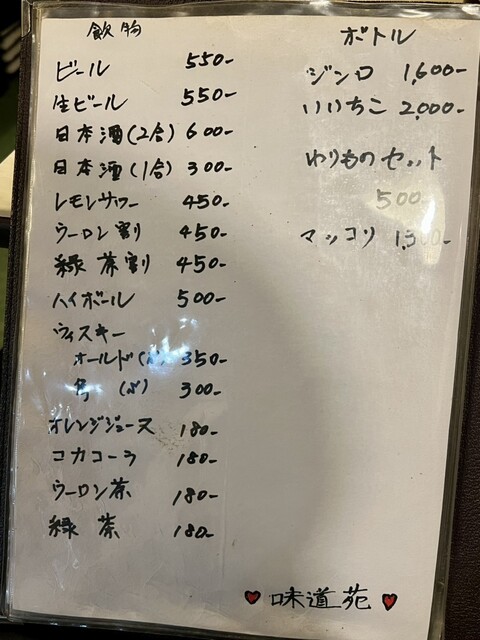 飲物
ビール 550-
生ビール 550-
日本酒(2合) 600-
日本酒(1合) 300-
レモンサワー 450-
ウーロン割 450-
緑茶割 450-
ハイボール 500-
ウィスキー
オールド 350-
300-
オレンジジュース 180-
コカコーラ 180-
ウーロン茶 180-
緑茶 180-
ボトル
ジンロ 1,600-
いいちこ 2,000-
わりものセット
500-
マッコリ
味道苑